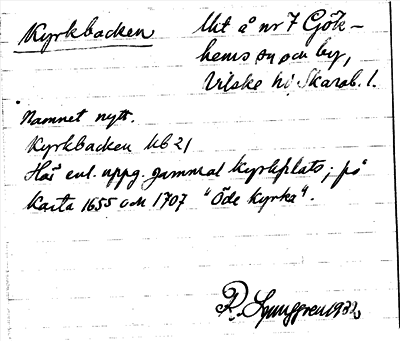 Kyrkbacken
Ukt å nr 7 Gök-
hems sn och by,
Vilske hd, Skarab. l.
Namnet nytt.
Kyrkbacken UB21
Här enl. uppg. gammal kyrkplats; på
karta 1655 och 1707 "Öde kyrka".
R. Ljunggren 1932